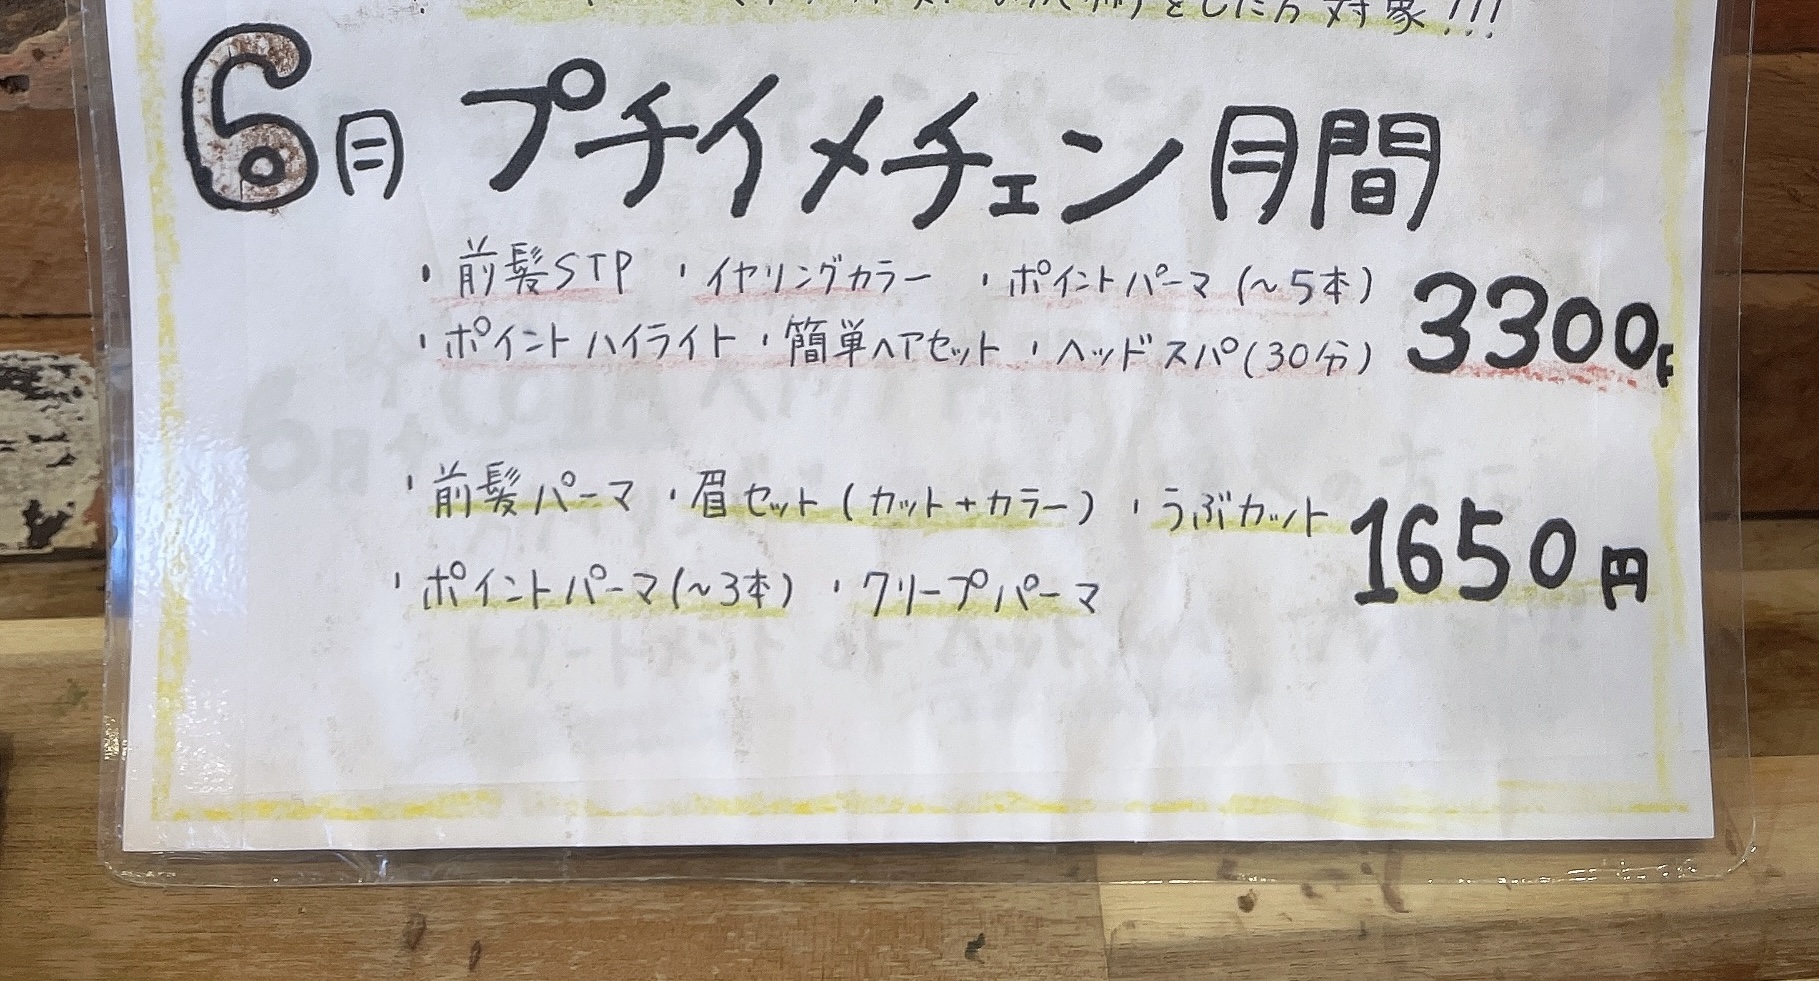 とした方 対象!!!
6月 プチイメチェン月間
・前髪STP ・イヤリングカラー ・ポイントパーマ (~5本)
・ポイントハイライト ・簡単ヘアセット ・ヘッドスパ(30分) 3300円
・前髪パーマ ・眉セット (カット+カラー) ・うぶカット
・ポイントパーマ(~3本) ・クリープパーマ 1650円